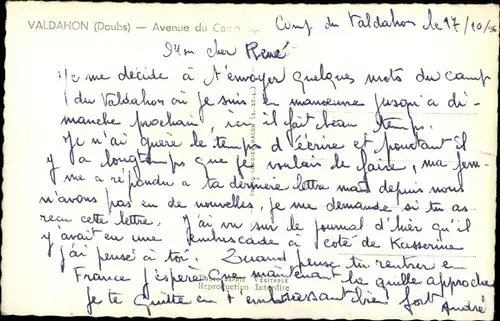 VALDAHON (Doubs) — Avenue du Camp
Camp du Valdahon le 17/10/56
Mon cher René
Je me décide à t'envoyer quelques mots du camp
du Valdahon où je suis en manœuvre jusqu'a di-
manche prochain, ici il fait beau temps.
Je n'ai guère le temps d'écrire et pourtant il
y a longtemps que je voulais le faire, ma fem-
me a répondu a ta dernière lettre mais depuis nous
n'avons pas eu de nouvelles, je me demande si tu as
reçu cette lettre. J'ai vu sur le journal d'hier qu'il
y avait eu une embuscade à coté de Kasserine
j'ai pensé à toi. Quand penses tu rentrer en
France j'espère que maintenant la quille approche
VÉRITABLE
Reproduction Interdite
Je te quitte en t'embrassant bien fort André